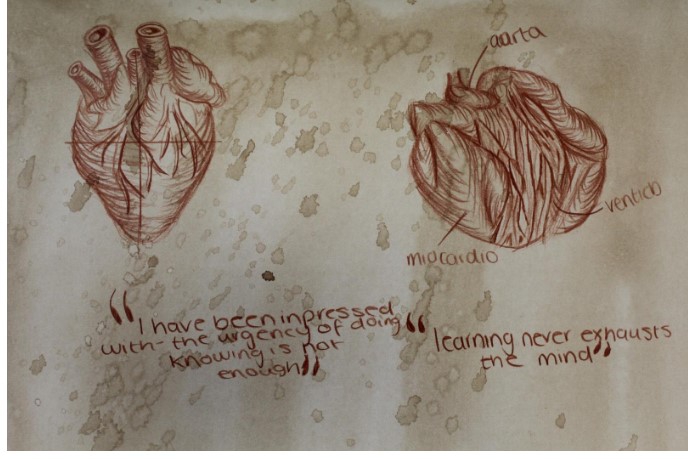 aarta
ventido
miocardio
"I have been inpressed
with- the urgency of doing
knowing is not
enough"
"learning never exhausts
the mind"